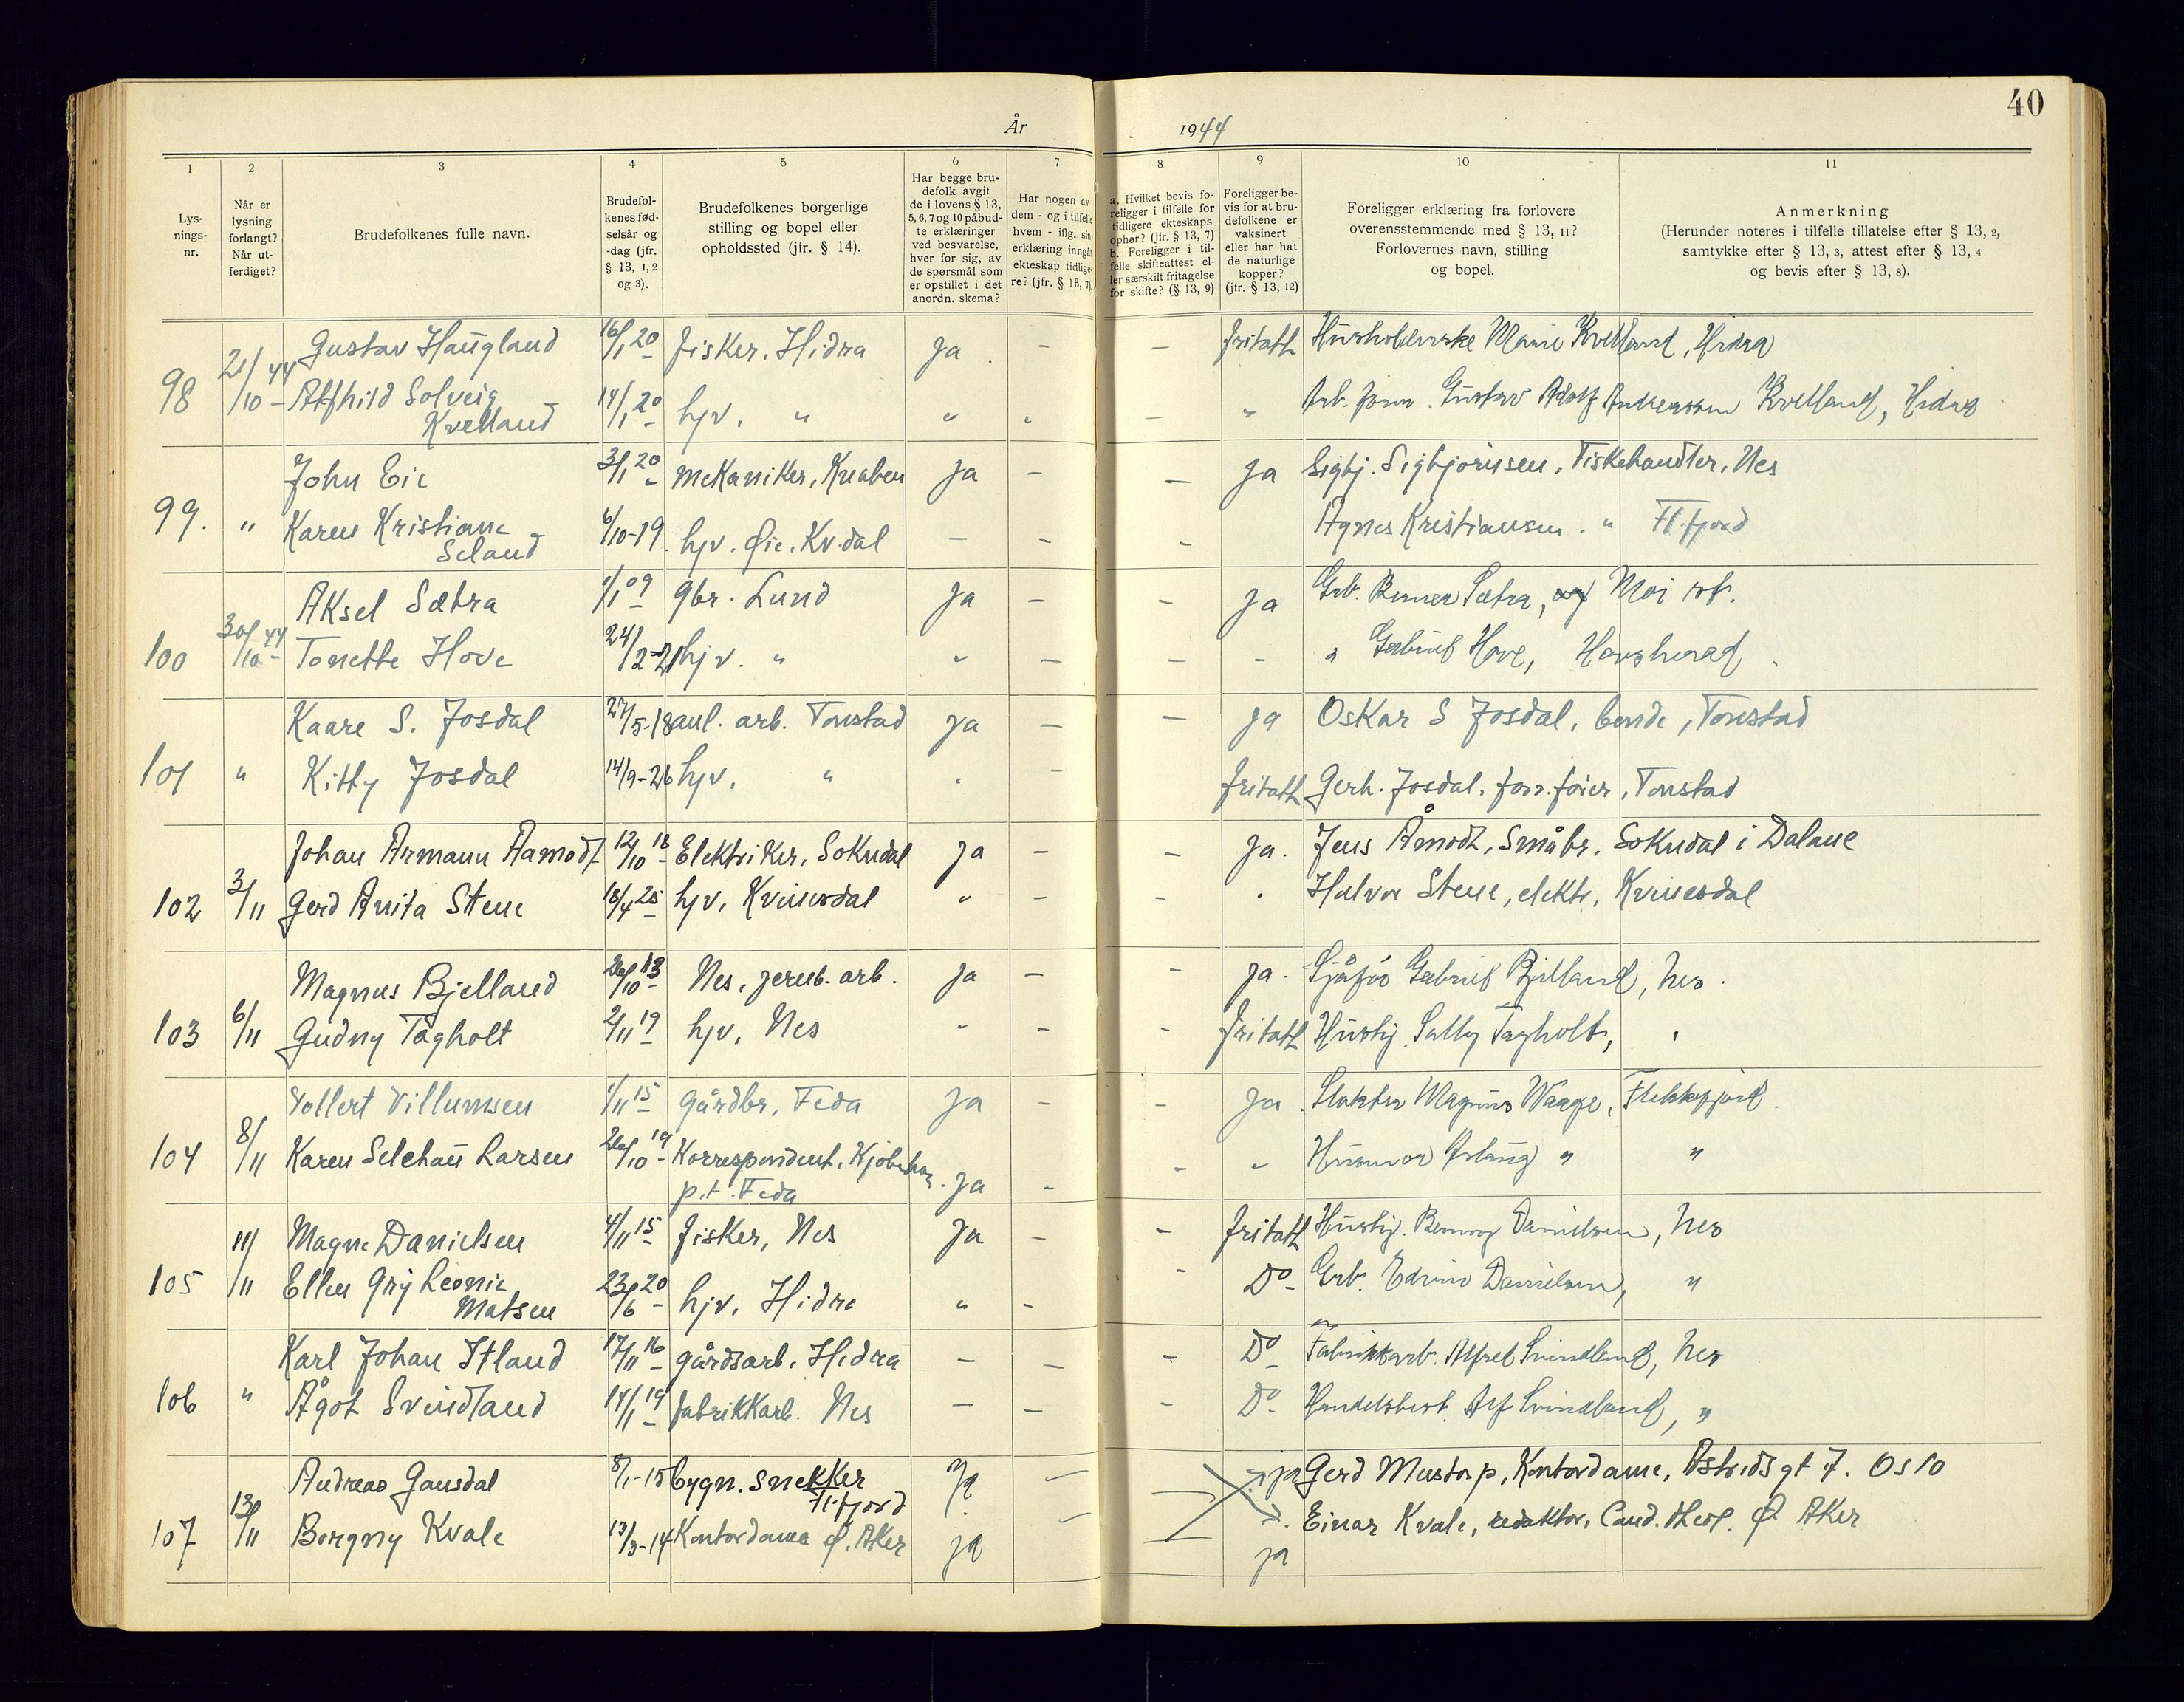 40
År 1944
1 2 3 4 5 6 7 8 9 10 11
Lys-
nings-
nr.
Når er
lysning
forlangt?
Når ut-
ferdiget?
Brudefolkenes fulle navn.
Brudefol-
kenes fød-
selsår og
-dag (jfr.
§ 13, 1, 2
og 3).
Brudefolkenes borgerlige
stilling og bopel eller
opholdssted (jfr. § 14).
Har begge bru-
defolk avgit
de i lovens § 13,
5, 6, 7 og 10 påbud-
te erklæringer
ved besvarelse,
hver for sig, av
de spørsmål som
er opstillet i det
anordn. skema?
Har nogen av
dem - og i tilfelle
hvem - iflg. sin
erklæring inngått
ekteskap tidlige-
re? (jfr. § 13, 7)
a. Hvilket bevis fo-
religger i tilfelle for
tidligere ekteskaps
ophør? (jfr. § 13, 7)
b. Foreligger i til-
felle skifteattest el-
ler særskilt fritagelse
for skifte? (§ 13, 9)
Foreligger be-
vis for at bru-
defolkene er
vaksinert
eller har hat
de naturlige
kopper?
(jfr. § 13, 12)
Foreligger erklæring fra forlovere
overensstemmende med § 13, 11?
Forlovernes navn, stilling
og bopel.
Anmerkning
(Herunder noteres i tilfelle tillatelse efter § 13, 2,
samtykke efter § 13, 3, attest efter § 13, 4
og bevis efter § 13, 8).
Gustav Haugland 16/1 20 fisker, Hidra Ja - - fritatt Marie Kvelland, Hidra
98 21/10 - 44 Alfhild Solveig 14/1 20 hjv. " " " - " Gustav Adolf Andreassen Kvelland, Hidra
Kvelland
John Eie 3/1 20 mekaniker, Knaben Ja - - Ja Sigbj. Sigbjørnsen, Fiskehandler, Nes
99. " Karen Kristiane 6/10-19. hjv. Øie, Kv.dal - - - Agnes Kristiansen. " Fl.fjord
Seland
Aksel Sætra 1/1 09 gbr. Lund Ja - - Ja Grb. Sætra, Moi
100 30/10 - 44 Tonette Hove 24/2-21 hjv. " " - - - " Gabriel Hove, Hovsherad
Kaare S. Josdal 27/5-18 anl. arb. Tonstad Ja - - Ja Oskar S Josdal, bonde, Tonstad
101 " Kitty Josdal 14/9-26 hjv. " . - fritatt Gerh. Josdal. , Tonstad
Johan Armann Aamodt 12/10 18 Elektriker, Sokndal Ja - - Ja. Jens Åmodt, Småbr. Sokndal i Dalane
102 3/11 Gerd Anita Stene 18/4 25 hjv, Kvinesdal " - - . Halvor Stene, elektr. Kvinesdal
Magnus Bjelland 26/10 13 Nes, jernb. arb. Ja - - Ja. Sjåfør Gabriel Bjelland, Nes.
103 6/11 Gudny Tagholt 2/11 19 hjv, Nes " - - fritatt Hustr. Sally Tagholt, "
Vollert Villumsen 1/11 15 gårdbr, Feda Ja - - Ja. Slakter Magnus Waage, Flekkefjord.
104 8/11 Karen Selchau Larsen 26/10 19 Korrespondent, Kjøbenhavn. Ja - - " Husmor Aslaug " "
p.t. Feda
Magne Danielsen 4/11 15 fisker, Nes Ja - - fritatt Hustr. Danielsen, Nes
105 11/11 Ellen Gry Leonie 23/6 20 hjv, Hidra " - - Do- Grb. Edvin Danielsen, "
Matsen
Karl Johan Itland 17/11 16 gårdsarb. Hidra - - - Do Fabrikkarb. Alfred Svindland, Nes
106 " Ågot Svindland 14/1 19 fabrikkarb. Nes - - - Do- Handelsbest. Alf Svindland, "
Andreas Gausdal 8/1-15 bygn. snekker Ja - ja Gerd Mustorp, Kontordame, Astridsgt 7. Oslo
Fl.fjord
107 13/11 Borgny Kvale 13/3-14 Kontordame Ø. Aker ja - . Einar Kvale, redaktør, Cand. theol. Ø Aker
ja